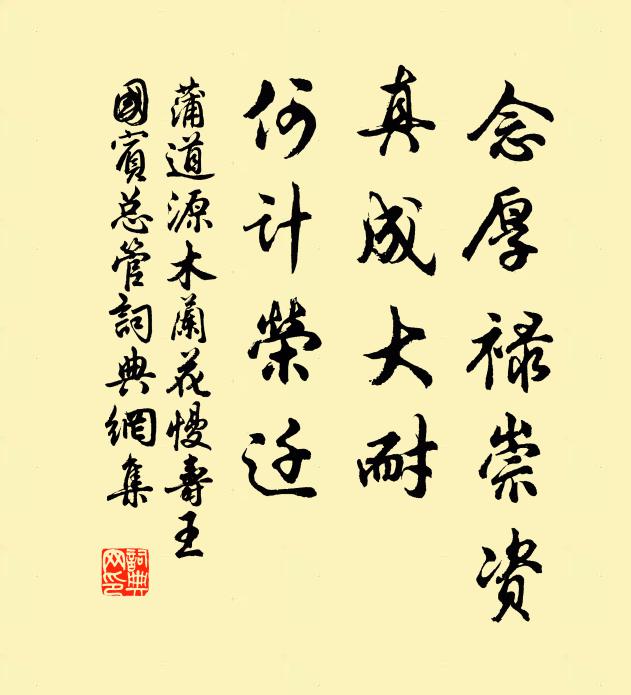 念厚禄崇资
真成大耐
何计榮迁
蒲道源木蘭花慢壽王
國賓总管詞典網集
詞典网印